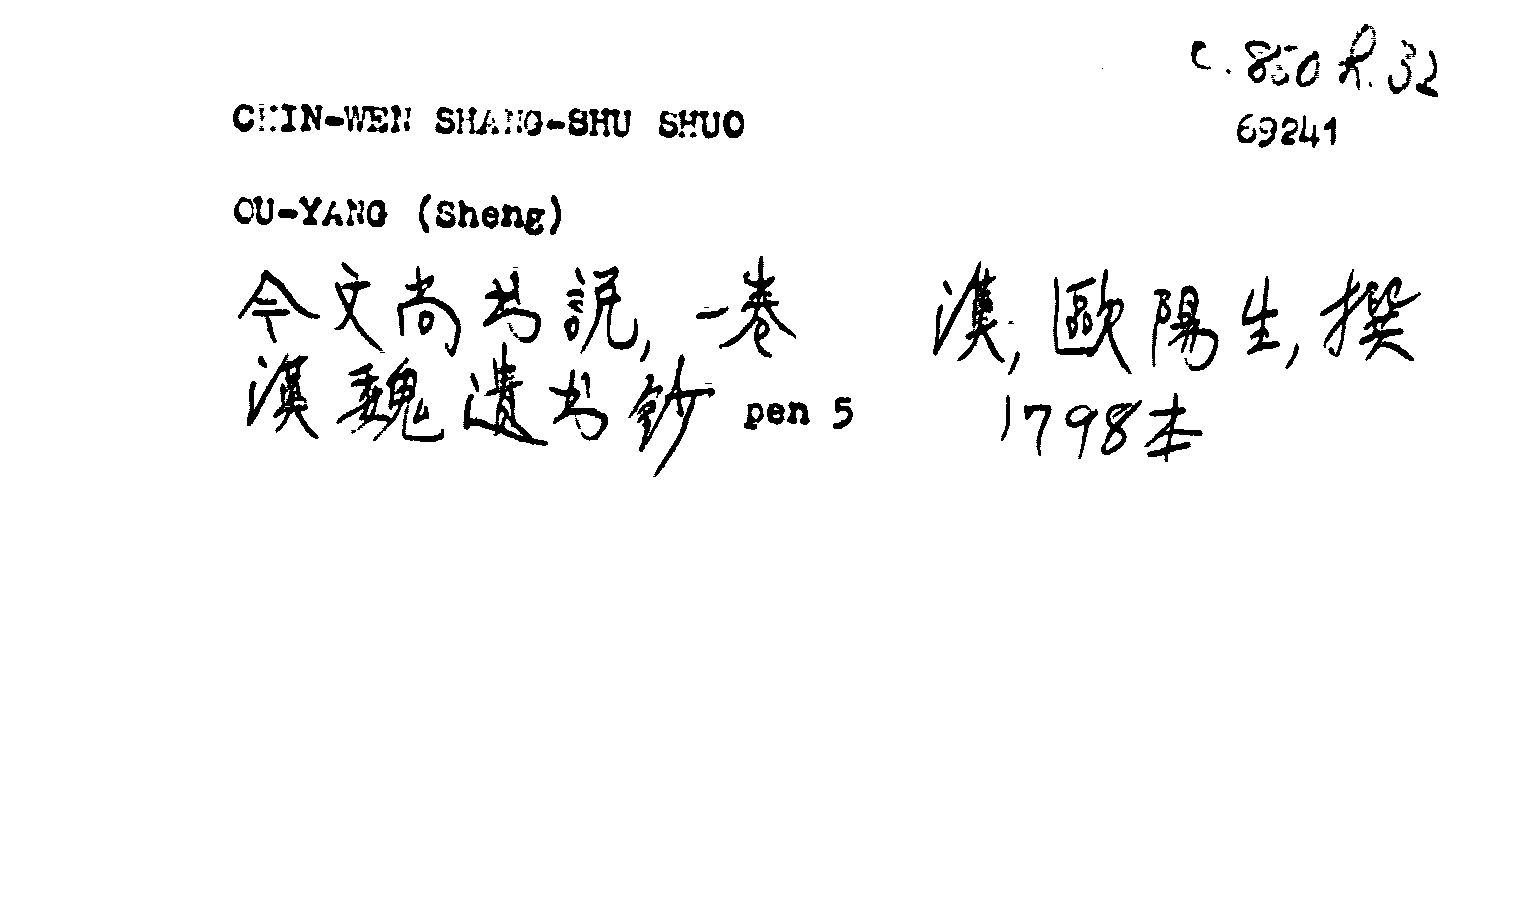 C. 850 R. 32
CHIN-WEN SHANG-SHU SHUO
69241
OU-YANG (Sheng)
今文尚书説, 一卷 漢, 歐陽生, 撰
漢魏遺书鈔 pen 5 1798本